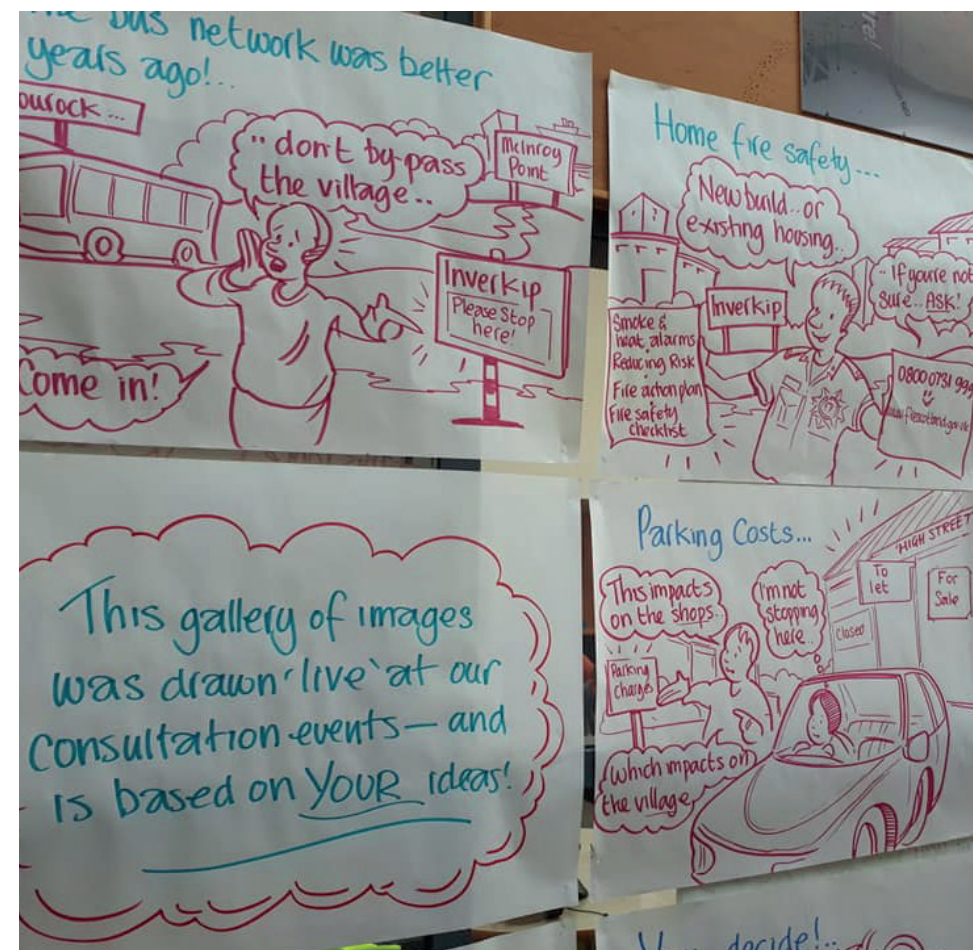 The bus network was better
years ago!..
ourock...
".. don't by-pass
the village..
McInroy
Point
Inverkip
Please Stop
here!
Come in!
Home fire safety...
New build.. or
existing housing..
Inverkip
- If you're not
sure.. ASK!
Smoke &
heat alarms
Reducing Risk
Fire action plan
Fire safety
checklist
0800 0731 999
This gallery of images
was drawn 'live' at our
consultation events — and
is based on YOUR ideas!
Parking Costs...
This impacts
on the shops..
I'm not
stopping
here..
'HIGH STREET'
To
let
For
Sale
Closed
Parking
charges
which impacts on
the village,
You decide!..